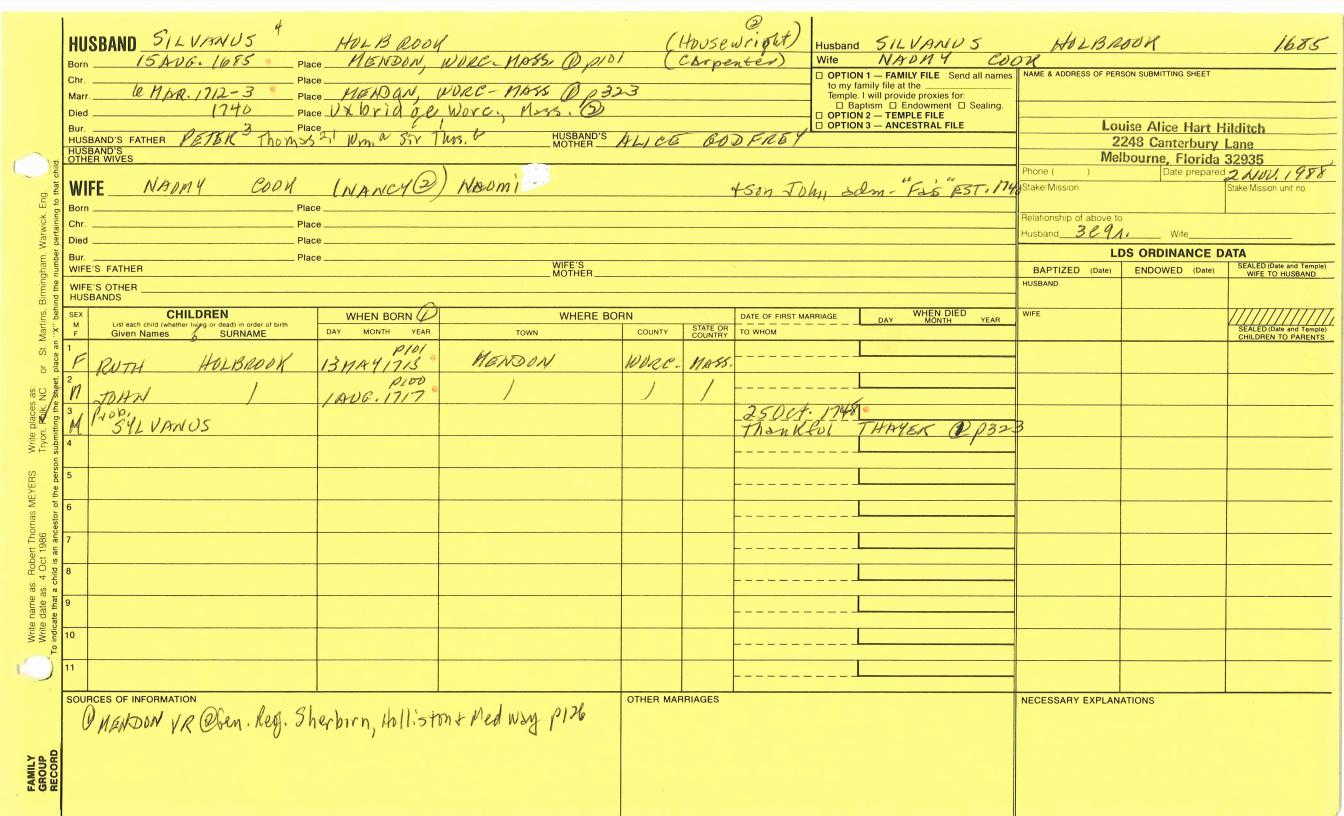 HUSBAND SILVANUS 4 HOLBROOK (Housewright) ②
Born 15 AUG. 1685 Place MENDON, WORC- MASS. ① p101 (Carpenter)
Chr. Place
Marr. 6 MAR. 1712-3 Place MENDON, WORC- MASS ① p323
Died 1740 Place Uxbridge, Worc, Mass. ②
Bur. Place
HUSBAND'S FATHER PETER 3 Thomas 2,1 Wm. a Sir Thos. b HUSBAND'S MOTHER ALICE GODFREY
HUSBAND'S OTHER WIVES
Husband SILVANUS HOLBROOK 1685
Wife NAOMY COOK
OPTION 1 — FAMILY FILE Send all names
to my family file at the
Temple. I will provide proxies for:
Baptism Endowment Sealing.
OPTION 2 — TEMPLE FILE
OPTION 3 — ANCESTRAL FILE
NAME & ADDRESS OF PERSON SUBMITTING SHEET
Louise Alice Hart Hilditch
2248 Canterbury Lane
Melbourne, Florida 32935
Phone ( ) Date prepared 2 NOV. 1988
Stake/Mission Stake Mission unit no.
Relationship of above to
Husband 3C9r. Wife
WIFE NAOMY COOK (NANCY ②) Naomi
+ son John, adm- "Fa's" EST. 1740
Born Place
Chr. Place
Died Place
Bur. Place
WIFE'S FATHER WIFE'S MOTHER
WIFE'S OTHER HUSBANDS
LDS ORDINANCE DATA
BAPTIZED (Date) ENDOWED (Date) SEALED (Date and Temple) WIFE TO HUSBAND
HUSBAND
WIFE
SEALED (Date and Temple) CHILDREN TO PARENTS
SEX M F
CHILDREN
List each child (whether living or dead) in order of birth
Given Names SURNAME
WHEN BORN ①
DAY MONTH YEAR
WHERE BORN
TOWN COUNTY STATE OR COUNTRY
DATE OF FIRST MARRIAGE
TO WHOM
WHEN DIED
DAY MONTH YEAR
1 p101
F RUTH HOLBROOK 13 MAY 1715 MENDON WORC- MASS.
2 p100
M JOHN / 1 AUG. 1717 / / /
3 Prob. 25 Oct. 1748
M SYLVANUS Thankful THAYER ① p323
4
5
6
7
8
9
10
11
SOURCES OF INFORMATION
① MENDON VR ② Gen. Reg. Sherborn, Holliston + Medway p126
OTHER MARRIAGES
NECESSARY EXPLANATIONS
FAMILY GROUP RECORD
Write name as: Robert Thomas MEYERS Write places as
Write date as: 4 Oct 1986 Tryon, Polk, NC or St. Martins, Birmingham, Warwick, Eng
To indicate that a child is an ancestor of the person submitting the sheet, place an "X" behind the number pertaining to that child.